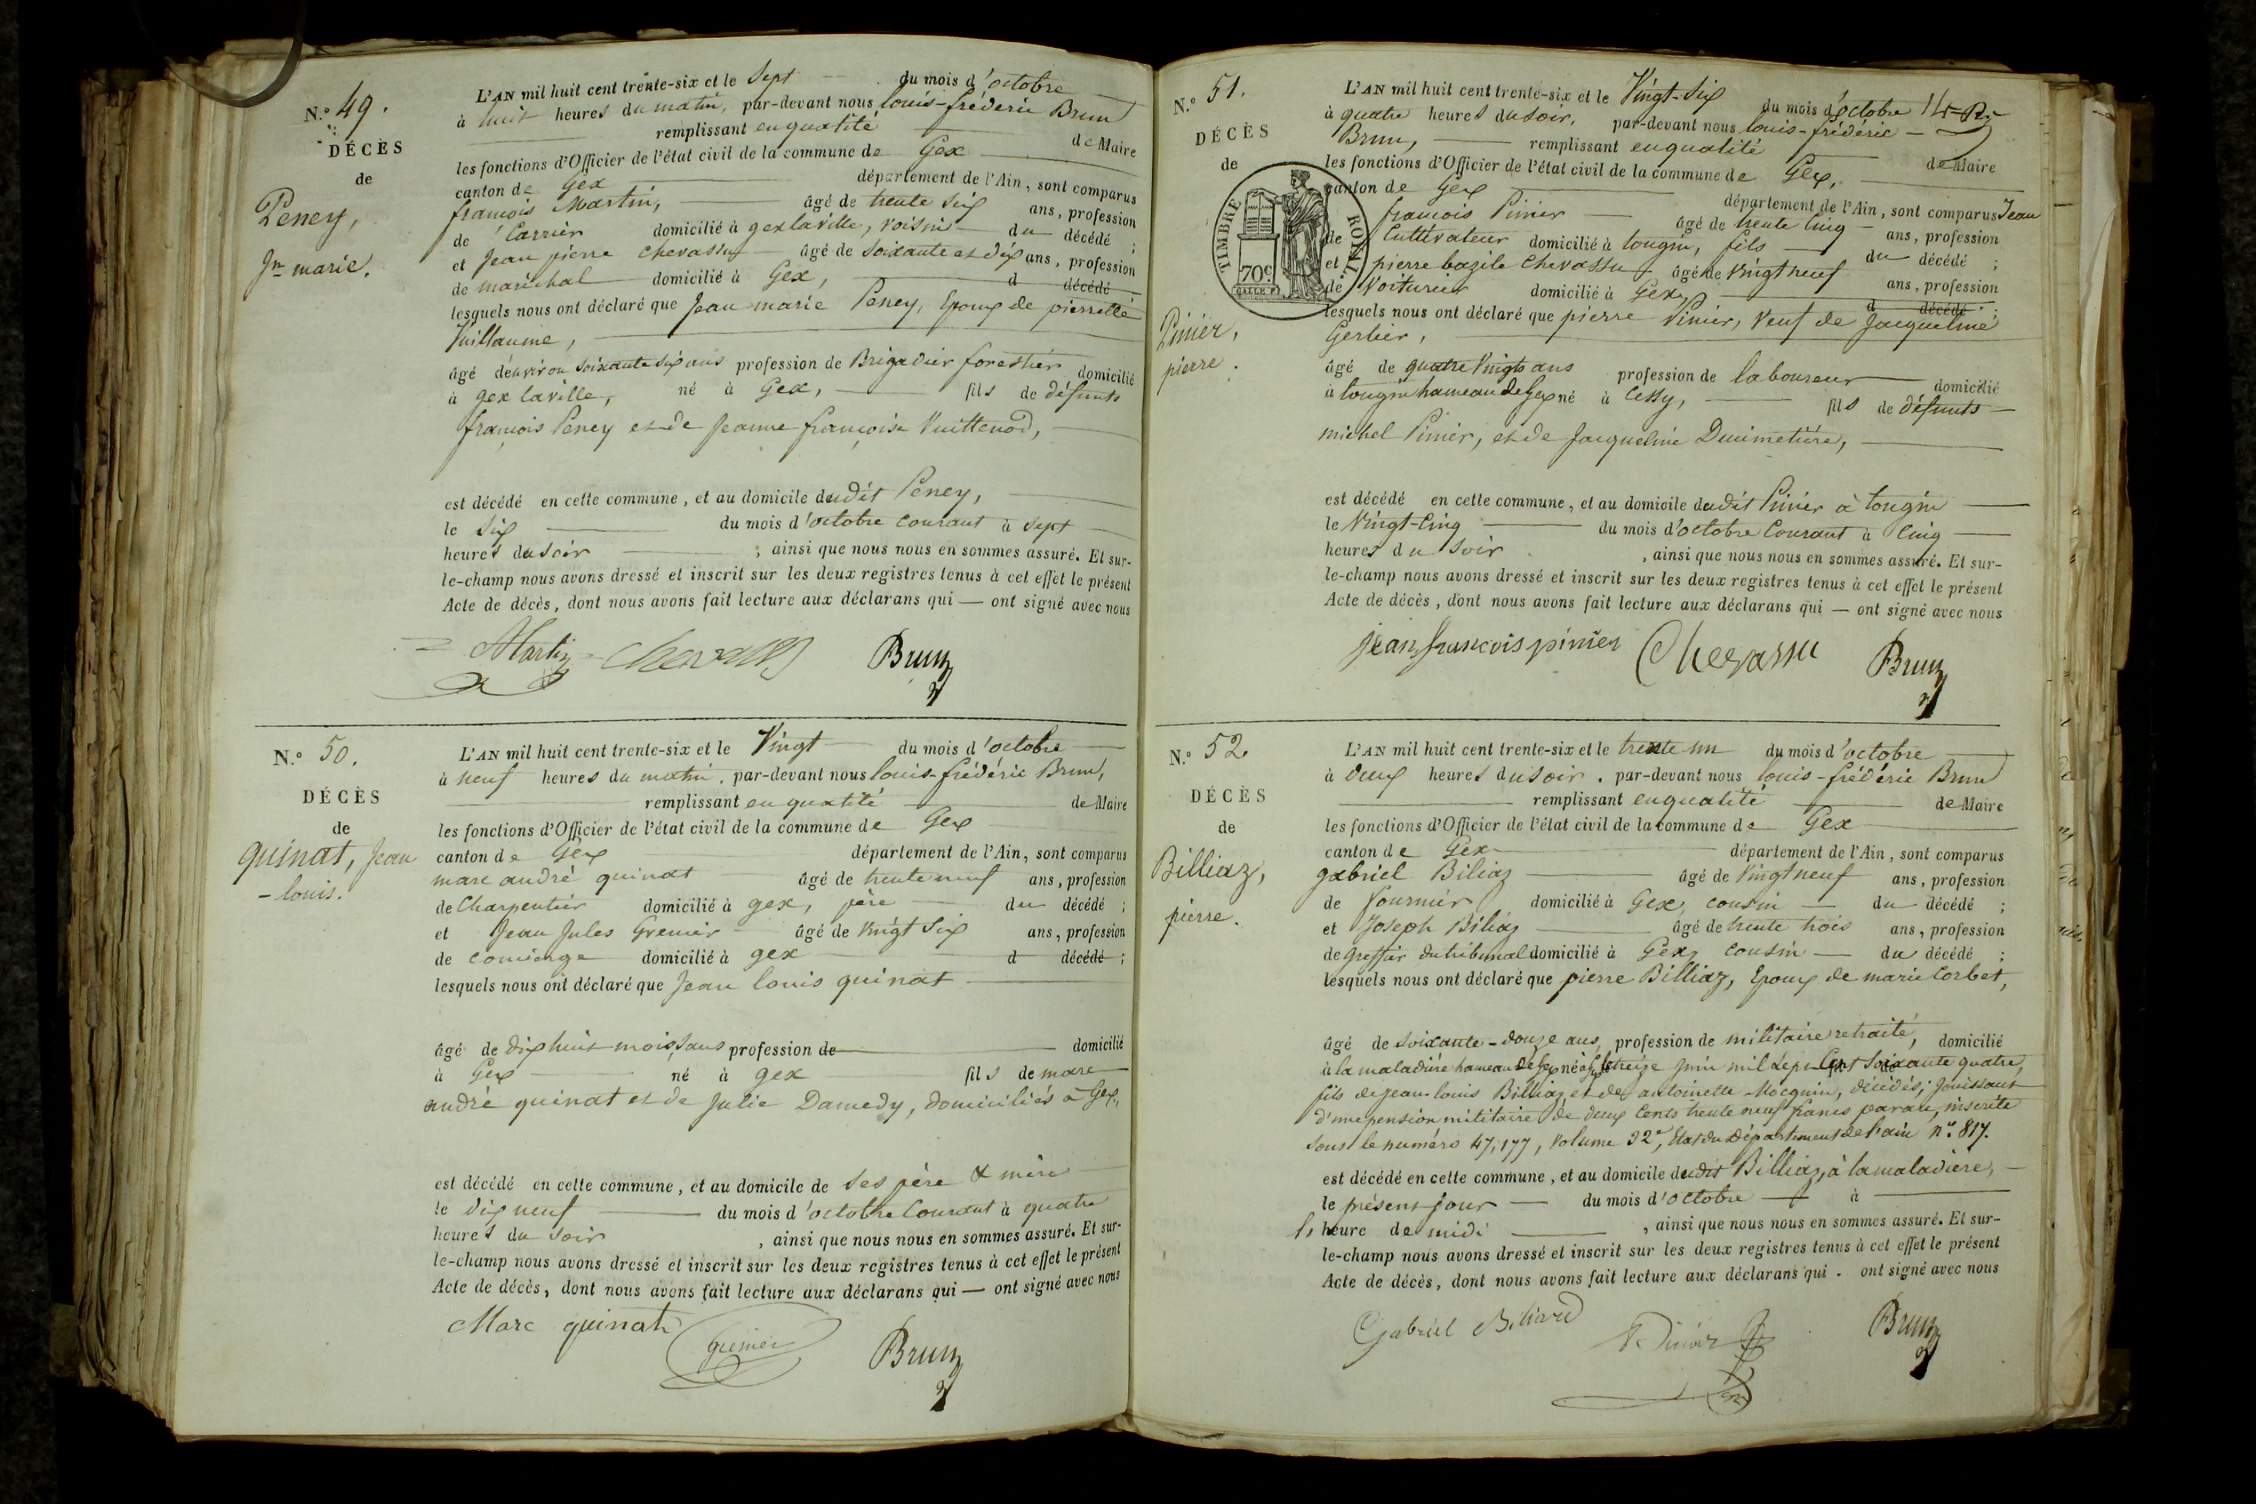 N.° 49.
DÉCÈS
de
Peney,
Jn marie.
L'AN mil huit cent trente-six et le Sept du mois d'octobre
à huit heures du matin, par-devant nous louis-fréderic Brun
remplissant en qualité de Maire
les fonctions d'Officier de l'état civil de la commune de Gex
canton de Gex département de l'Ain, sont comparus
françois Martin, âgé de trente Six ans, profession
de Carrier domicilié à gex laville, voisin du décédé ;
et Jean pierre Chevassu âgé de Soixante et dix ans, profession
de maréchal domicilié à Gex, d décédé
lesquels nous ont déclaré que Jean marie Peney, Epoux de pierrette
Vuillaume,
âgé d'environ Soixante Six ans profession de Brigadier forestier domicilié
à gex laville, né à Gex, fils de défunts
françois Peney et de Jeanne françoise Vuittenod,
est décédé en cette commune, et au domicile dudit Peney,
le Six du mois d'octobre courant à Sept
heures du Soir ; ainsi que nous nous en sommes assuré. Et sur-
le-champ nous avons dressé et inscrit sur les deux registres tenus à cet effet le présent
Acte de décès, dont nous avons fait lecture aux déclarans qui — ont signé avec nous
Martin Chevassu Brun
N.° 50.
DÉCÈS
de
quinat, Jean
-louis.
L'AN mil huit cent trente-six et le Vingt du mois d'octobre
à neuf heures du matin. par-devant nous louis-frédéric Brun,
remplissant en qualité de Maire
les fonctions d'Officier de l'état civil de la commune de Gex
canton de Gex département de l'Ain, sont comparus
marc andré quinat âgé de trente neuf ans, profession
de Charpentier domicilié à gex, père du décédé ;
et Jean Jules Grenier âgé de Vingt Six ans, profession
de concierge domicilié à gex d décédé ;
lesquels nous ont déclaré que Jean louis quinat
âgé de dix huit mois, sans profession de domicilié
à Gex né à gex fils de marc
andré quinat et de Julie Damedy, domiciliés à Gex,
est décédé en cette commune, et au domicile de Ses père & mère
le dix neuf du mois d'octobre Courant à quatre
heures du Soir , ainsi que nous nous en sommes assuré. Et sur-
le-champ nous avons dressé et inscrit sur les deux registres tenus à cet effet le présent
Acte de décès, dont nous avons fait lecture aux déclarans qui — ont signé avec nous
Marc quinat grenier Brun
N.° 51.
DÉCÈS
de
TIMBRE ROYAL
70 c.
Pinier,
pierre.
L'AN mil huit cent trente-six et le Vingt-Six du mois d'octobre
à quatre heures du soir, par-devant nous louis-frédéric
Brun, remplissant en qualité de Maire
les fonctions d'Officier de l'état civil de la commune de Gex,
canton de Gex département de l'Ain, sont comparus Jean
françois Pinier âgé de trente Cinq ans, profession
de Cultivateur domicilié à tougin, fils du décédé ;
et pierre bazile Chevassu âgé de Vingt neuf ans, profession
de Voiturier domicilié à Gex, d décédé ;
lesquels nous ont déclaré que pierre Pinier, Veuf de Jacqueline
Gerlier,
âgé de quatre Vingts ans profession de laboureur domicilié
à tougin hameau de Gex né à Cessy, fils de défunts
michel Pinier, et de Jacqueline Ducimetière,
est décédé en cette commune, et au domicile dudit Pinier à tougin
le Vingt-Cinq du mois d'octobre Courant à Cinq
heures du Soir , ainsi que nous nous en sommes assuré. Et sur-
le-champ nous avons dressé et inscrit sur les deux registres tenus à cet effet le présent
Acte de décès, dont nous avons fait lecture aux déclarans qui — ont signé avec nous
jean françois pinier Chevassu Brun
N.° 52.
DÉCÈS
de
Billiaz,
pierre.
L'AN mil huit cent trente-six et le trente un du mois d'octobre
à deux heures du soir. par-devant nous louis-frédéric Brun
remplissant en qualité de Maire
les fonctions d'Officier de l'état civil de la commune de Gex
canton de Gex département de l'Ain, sont comparus
gabriel Biliaz âgé de Vingt neuf ans, profession
de Fournier domicilié à Gex, cousin du décédé ;
et Joseph Biliaz âgé de trente trois ans, profession
de greffier du tribunal domicilié à Gex, cousin du décédé ;
lesquels nous ont déclaré que pierre Billiaz, Epoux de marie Corbet,
âgé de Soixante-douze ans, profession de militaire retraité, domicilié
à la maladière hameau de Gex né à Gex le treize Juin mil Sept Cent Soixante quatre,
fils de Jean-louis Billiaz et de antoinette Mocquin, décédés; Jouissant
d'une pension militaire de deux Cents trente neuf francs par an, inscrite
Sous le numéro 47,177, Volume 32e, Etat du Département de l'ain n°. 817.
est décédé en cette commune, et au domicile dudit Billiaz, à la maladière,
le présent jour du mois d'octobre à
l' heure de midi , ainsi que nous nous en sommes assuré. Et sur-
le-champ nous avons dressé et inscrit sur les deux registres tenus à cet effet le présent
Acte de décès, dont nous avons fait lecture aux déclarans qui . ont signé avec nous
Gabriel Brun